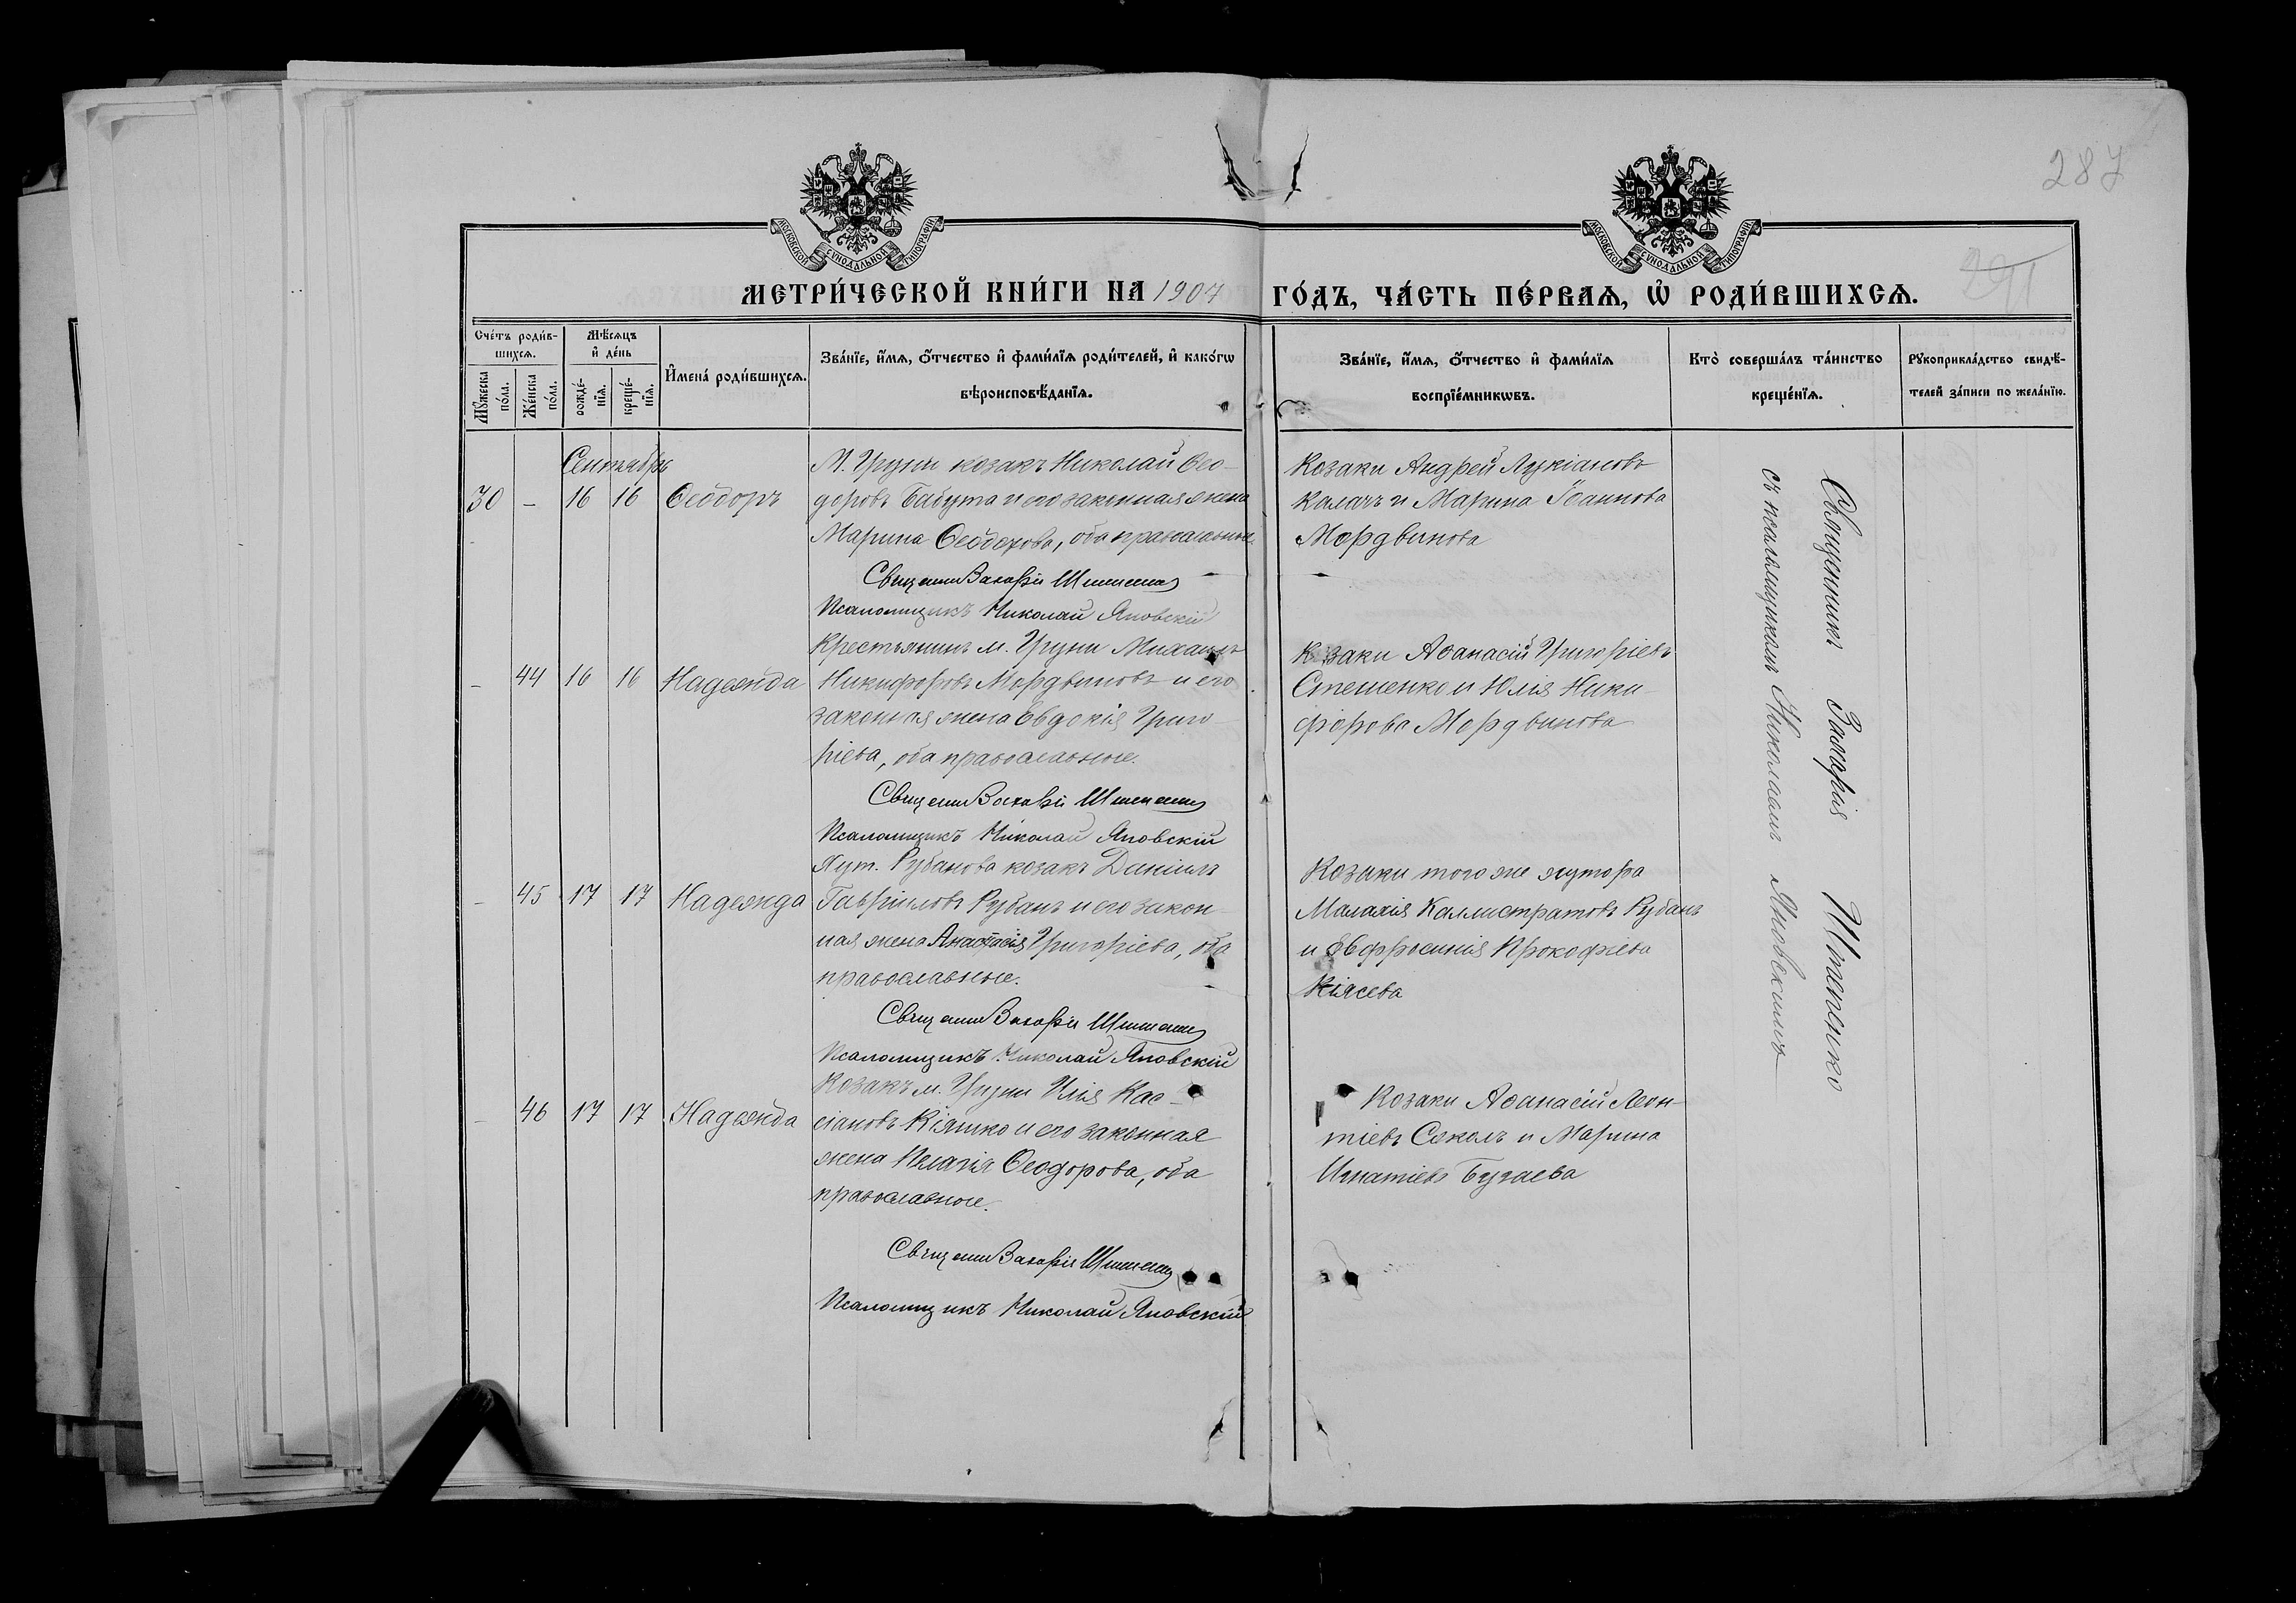 287
291
МОСКОВСКОЙ СѴНОДАЛЬНОЙ ТИПОГРАФІИ
МОСКОВСКОЙ СѴНОДАЛЬНОЙ ТИПОГРАФІИ
МЕТРИ́ЧЕСКОЙ КНИ́ГИ НА 1907 ГО́ДЪ, ЧА́СТЬ ПЕ́РВАѦ, Ѡ҆ РОДИ́ВШИХСѦ.
Сче́тъ роди́в-
шихсѧ.
Мꙋ́жеска по́ла.
Же́нска по́ла.
Мѣ́сѧцъ
и҆ де́нь
рожде́-
нїѧ.
креще́-
нїѧ.
И҆мена̀ роди́вшихсѧ.
Зва́нїе, и҆́мѧ, ѻ҆́тчество и҆ фами́лїѧ роди́телей, и҆ како́гѡ
вѣроисповѣ́данїѧ.
Зва́нїе, и҆́мѧ, ѻ҆́тчество и҆ фами́лїѧ
воспрїе́мникѡвъ.
Кто̀ соверша́лъ та́инство
креще́нїѧ.
Рꙋкоприкла́дство свидѣ́-
телей за́писи по жела́нїю.
Сентябрь
30 – 16 16 Ѳеодоръ
М. Груни козакъ Николай Ѳео-
доровъ Бабута и его законная жена
Марина Ѳеодорова, оба православные.
Священн Захарій Шишенко
Псаломщикъ Николай Яновскій
Козаки Андрей Лукіановъ
Калачъ и Марина Іоаннова
Мордвинова
– 44 16 16 Надежда
Крестьянинъ м. Груни Михаилъ
Никифоровъ Мордвиновъ и его
законная жена Евдокія Григо-
ріева, оба православные.
Священн Захарій Шишенко
Псаломщикъ Николай Яновскій
Козаки Аѳанасій Григоріевъ
Стешенко и Юлія Ники-
форова Мордвинова
– 45 17 17 Надежда
Хут. Рубанова козакъ Даніилъ
Гавріиловъ Рубанъ и его закон-
ная жена Анастасія Григоріева, оба
православные.
Священн Захарій Шишенко
Псаломщикъ Николай Яновскій
Козаки того же хутора
Малахія Каллистратовъ Рубанъ
и Евфросинія Прокофіева
Кіясева
– 46 17 17 Надежда
Козакъ м. Груни Илія Кас-
сіановъ Кіяшко и его законная
жена Пелагія Ѳеодорова, оба
православные.
Священн Захарій Шишенко
Псаломщикъ Николай Яновскій
Козаки Аѳанасій Леон-
тіевъ Соколъ и Марина
Игнатіева Бугаева
Священникъ Захарія Шишенко
съ псаломщикомъ Николаемъ Яновскимъ